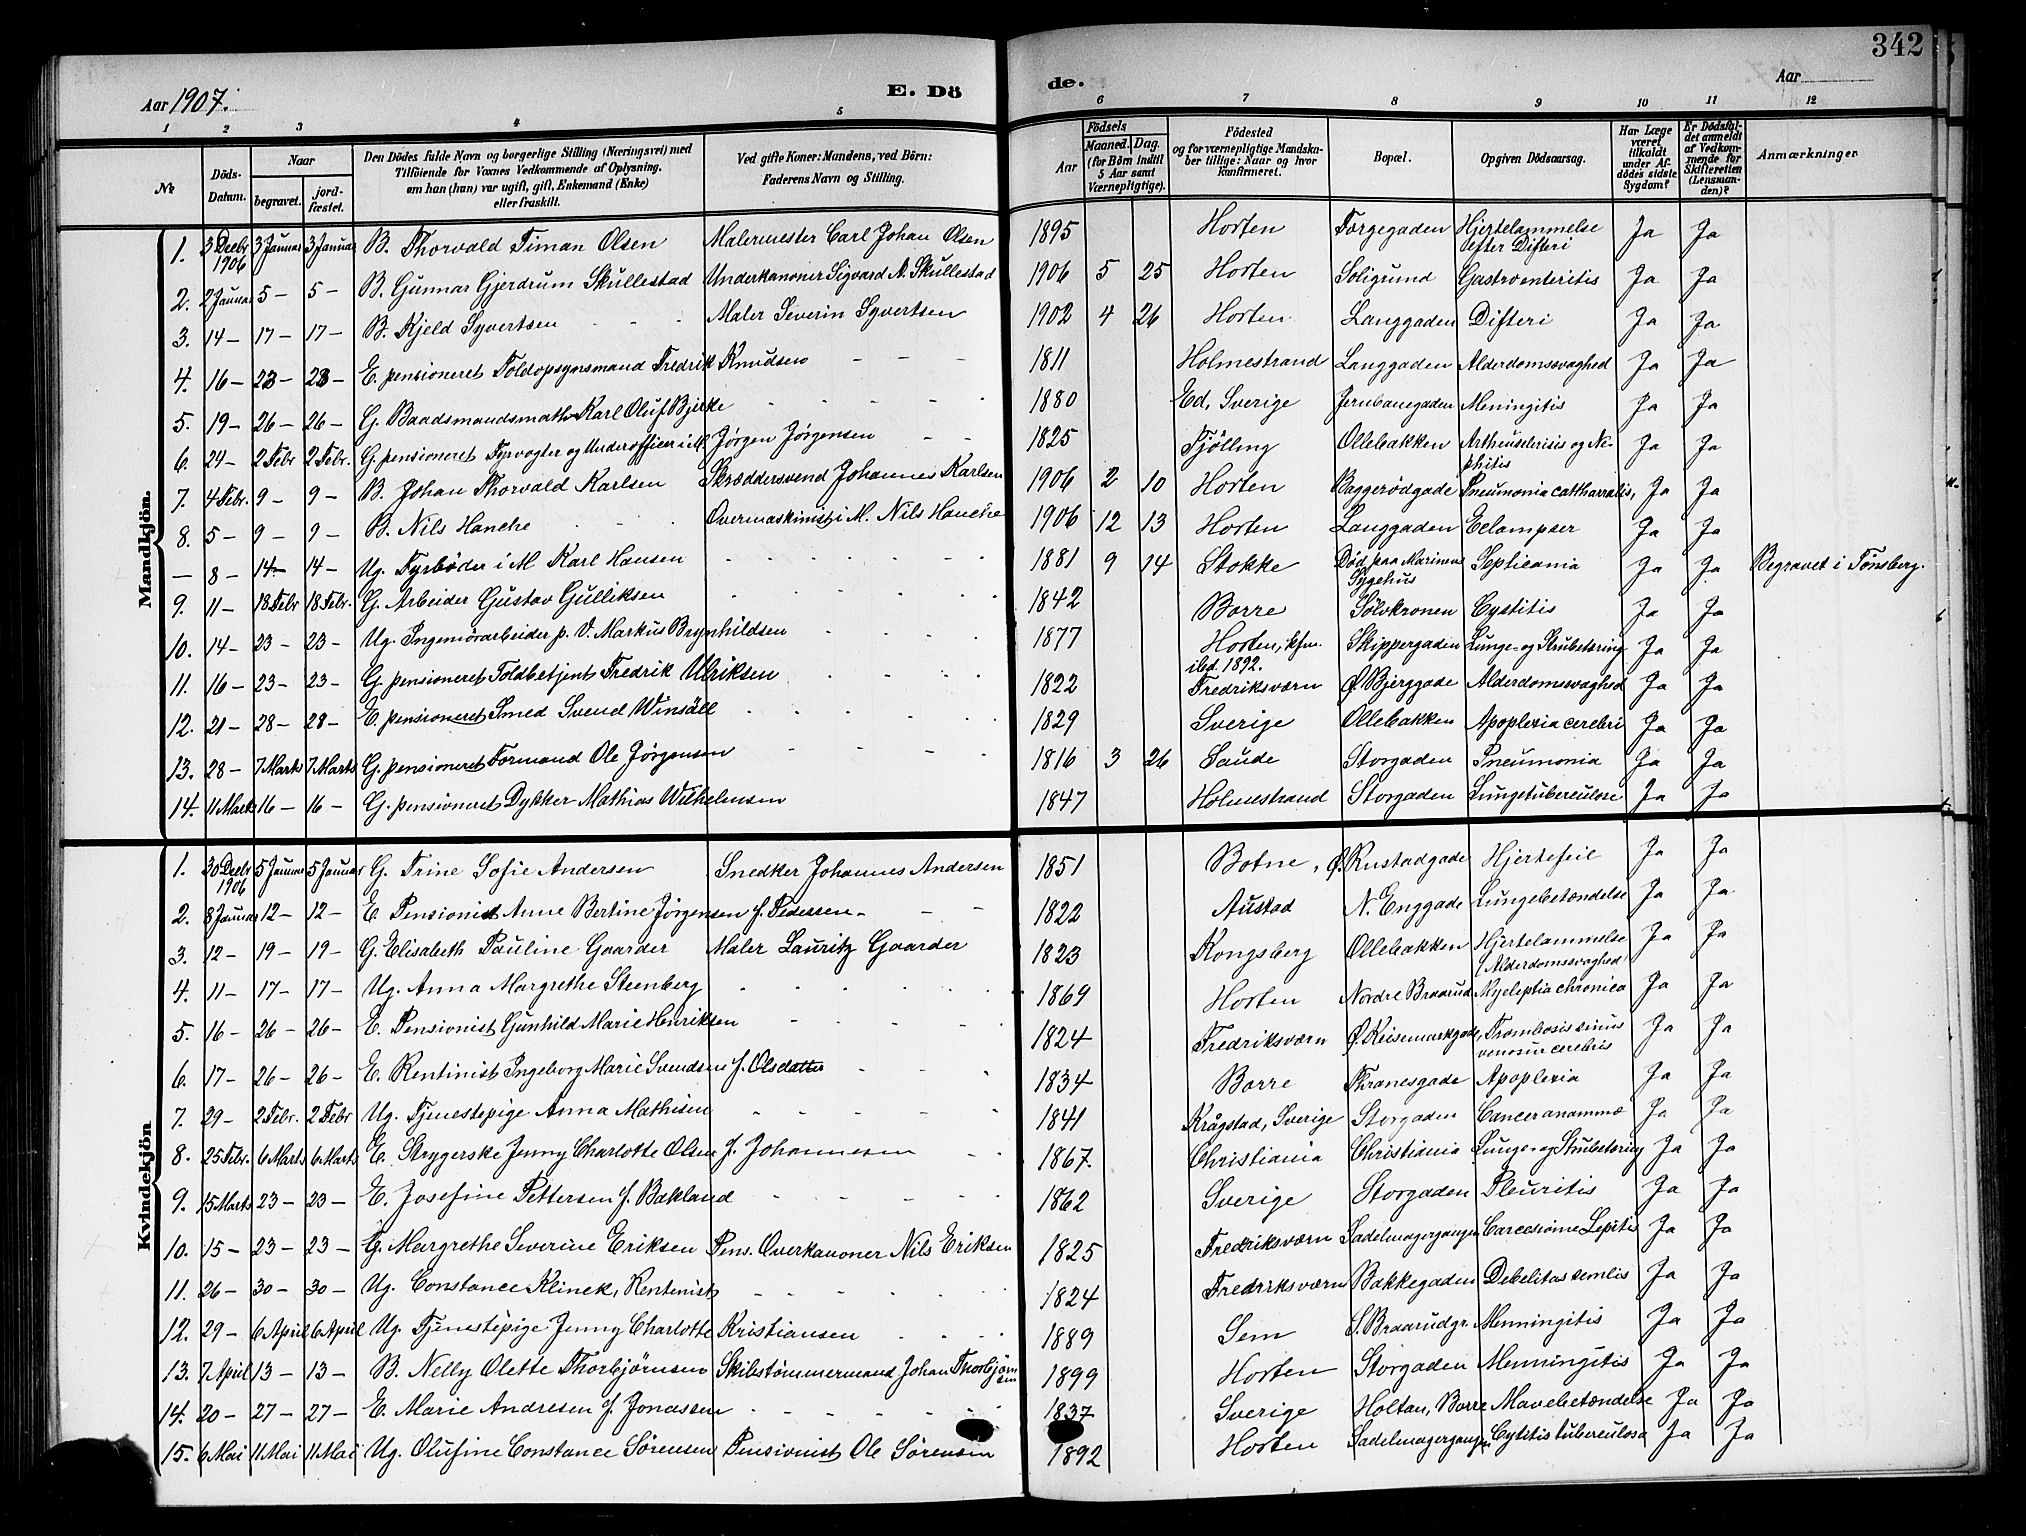 342
Aar 1907. E. Dö de. Aar
1 2 3 4 5 6 7 8 9 10 11 12
№ Döds-Datum. Naar begravet. jord-fæstet. Den Dödes fulde Navn og borgerlige Stilling (Næringsvei) med Tilföiende for Voxnes Vedkommende af Oplysning, om han (hun) var ugift, gift, Enkemand (Enke) eller fraskilt. Ved gifte Koner: Mandens, ved Börn: Faderens Navn og Stilling. Födsels Aar Maaned. Dag. (for Börn indtil 5 Aar samt Værnepligtige). Födested og for værnepligtige Mandskaber tillige: Naar og hvor konfirmeret. Bopæl. Opgiven Dödsaarsag. Har Læge været tilkaldt under Afdödes sidste Sygdom? Er Dödsfaldet anmeldt af Vedkommende for Skifteretten (Lensmanden)? Anmærkninger
Mandkjön.
1. 3 Decbr 1906 3 Januar 3 Januar B. Thorvald Timan Olsen Malermester Carl Johan Olsen 1895 Horten Torgegaden Hjertelammelse efter Difteri Ja Ja
2. 2 Januar 5 - 5 - B. Gunnar Gjerdrum Skullestad Underkanoner Sigvard A. Skullestad 1906 5 25 Horten Soligrund Gastroenteritis Ja Ja
3. 14 - 17 - 17 - B. Kjeld Syvertsen Maler Severin Syvertsen 1902 4 26 Horten Langgaden Difteri Ja Ja
4. 16 - 23 - 23 - E. pensioneret Toldopsynsmand Fredrik Knudsen 1811 Holmestrand Langgaden Alderdomssvaghed Ja Ja
5. 19 - 26 - 26 - G. Baadsmandsmath Karl Oluf Bjerke 1880 Ed, Sverige Jernbanegaden Meningitis Ja Ja
6. 24 - 2 Febr 2 Febr. G. pensioneret Fyrvogter og Underofficer i M. Jørgen Jørgensen 1825 Tjølling Ollebakken og Nephitis Ja Ja
7. 4 Febr. 9 - 9 - B. Johan Thorvald Karlsen Skræddersvend Johannes Karlsen 1906 2 10 Horten Baggerødgade Pneumonia cattharralis, Ja Ja
8. 5 - 9 - 9 - B. Nils Hanche Overmaskinist i M. Nils Hanche 1906 12 13 Horten Langgaden Eclampser Ja Ja
— 8 - 14 - 14 - Ug. Fyrbøder i M Karl Hansen 1881 9 14 Stokke Død paa Marinens Sygehus Septicania Ja Ja Begravet i Tønsberg.
9. 11 - 18 Febr 18 Febr. G. Arbeider Gustav Gulliksen 1842 Borre Sølvkronen Cystitis Ja Ja
10. 14 - 23 - 23 - Ug. Ingeniørarbeider p. V. Markus Brynhildsen 1877 Horten, kfm. ibd. 1892. Skippergaden Lunge- og Strubetæring Ja Ja
11. 16 - 23 - 23 - G. pensioneret Toldbetjent Fredrik Ulriksen 1822 Fredriksværn Ø. Bjerggade Alderdomssvaghed Ja Ja
12. 21 - 28 - 28 - E. pensioneret Smed Svend Winsäll 1829 Sverige Ollebakken Apoplexia cerebri Ja Ja
13. 28 - 7 Marts 7 Marts G. pensioneret Formand Ole Jørgensen 1816 3 26 Saude Storgaden Pneumonia Ja Ja
14. 11 Marts 16 - 16 - G. pensioneret Dykker Mathias Wilhelmsen 1847 Holmestrand Storgaden Lungetuberculose Ja Ja
Kvindekjön
1. 30 Decbr 1906 5 Januar 5 Januar G. Trine Sofie Andersen Snedker Johannes Andersen 1851 Botne Ø. Rustadgade Hjertefeil Ja Ja
2. 8 Januar 12 - 12 - E. Pensionist Anne Bertine Jørgensen f. Pedersen 1822 Austad N. Enggade Lungebetændelse Ja Ja
3. 12 - 19 - 19 - G. Elisabeth Pauline Gaarder Maler Lauritz Gaarder 1823 Kongsberg Ollebakken Hjertelammelse (Alderdomssvaghed) Ja Ja
4. 11 - 17 - 17 - Ug. Anna Margrethe Steenberg 1869 Horten Nordre Braarud chronica Ja Ja
5. 16 - 26 - 26 - E. Pensionist Gunhild Marie Henriksen 1824 Fredriksværn Ø. Keisemarkgade, Trombosis sinus venosun cerebris Ja Ja
6. 17 - 26 - 26 - E. Rentinist Ingeborg Marie Svendsen f. Olsdatter 1834 Borre Thranesgade Apoplexia Ja Ja
7. 29 - 2 Febr. 2 Febr Ug. Tjenestepige Anna Mathisen 1841 Krågstad, Sverige Storgaden Cancer anammæ Ja Ja
8. 25 Febr. 6 Marts 6 Marts E. Strygerske Jenny Charlotte Olsen f. Johannesen 1867. Christiania Christiania Lunge- og Strubetæring Ja Ja
9. 15 Marts 23 - 23 - E. Josefine Pettersen f. Bakland 1862 Sverige Storgaden Pleuritis Ja Ja
10. 15 - 23 - 23 - G. Margrethe Severine Eriksen Pens. Overkanoner Nils Eriksen 1825 Fredriksværn Sadelmagergangen Ja Ja
11. 26 - 30 - 30 - Ug. Constance Klinck, Rentenist 1824 Fredriksværn Bakkegaden Debelitas semlis Ja Ja
12. 29 - 6 April 6 April Ug. Tjenestepige Jenny Charlotte Kristiansen 1889 Sem S. Braarudgr. Menningitis Ja Ja
13. 7 April 13 - 13 - B. Nelly Olette Thorbjørnsen Skibstømmermand Johan Thorbjørnsen 1899 Horten Storgaden Menningitis Ja Ja
14. 20 - 27 - 27 - E. Marie Andresen f. Jonassen 1837 Sverige Holtan, Borre Mavebetændelse Ja Ja
15. 6 Mai 11 Mai 11 Mai Ug. Olufine Constance Sørensen Pensionist Ole Sørensen 1892 Horten Sadelmagergangen Cystitis tuberculosa Ja Ja